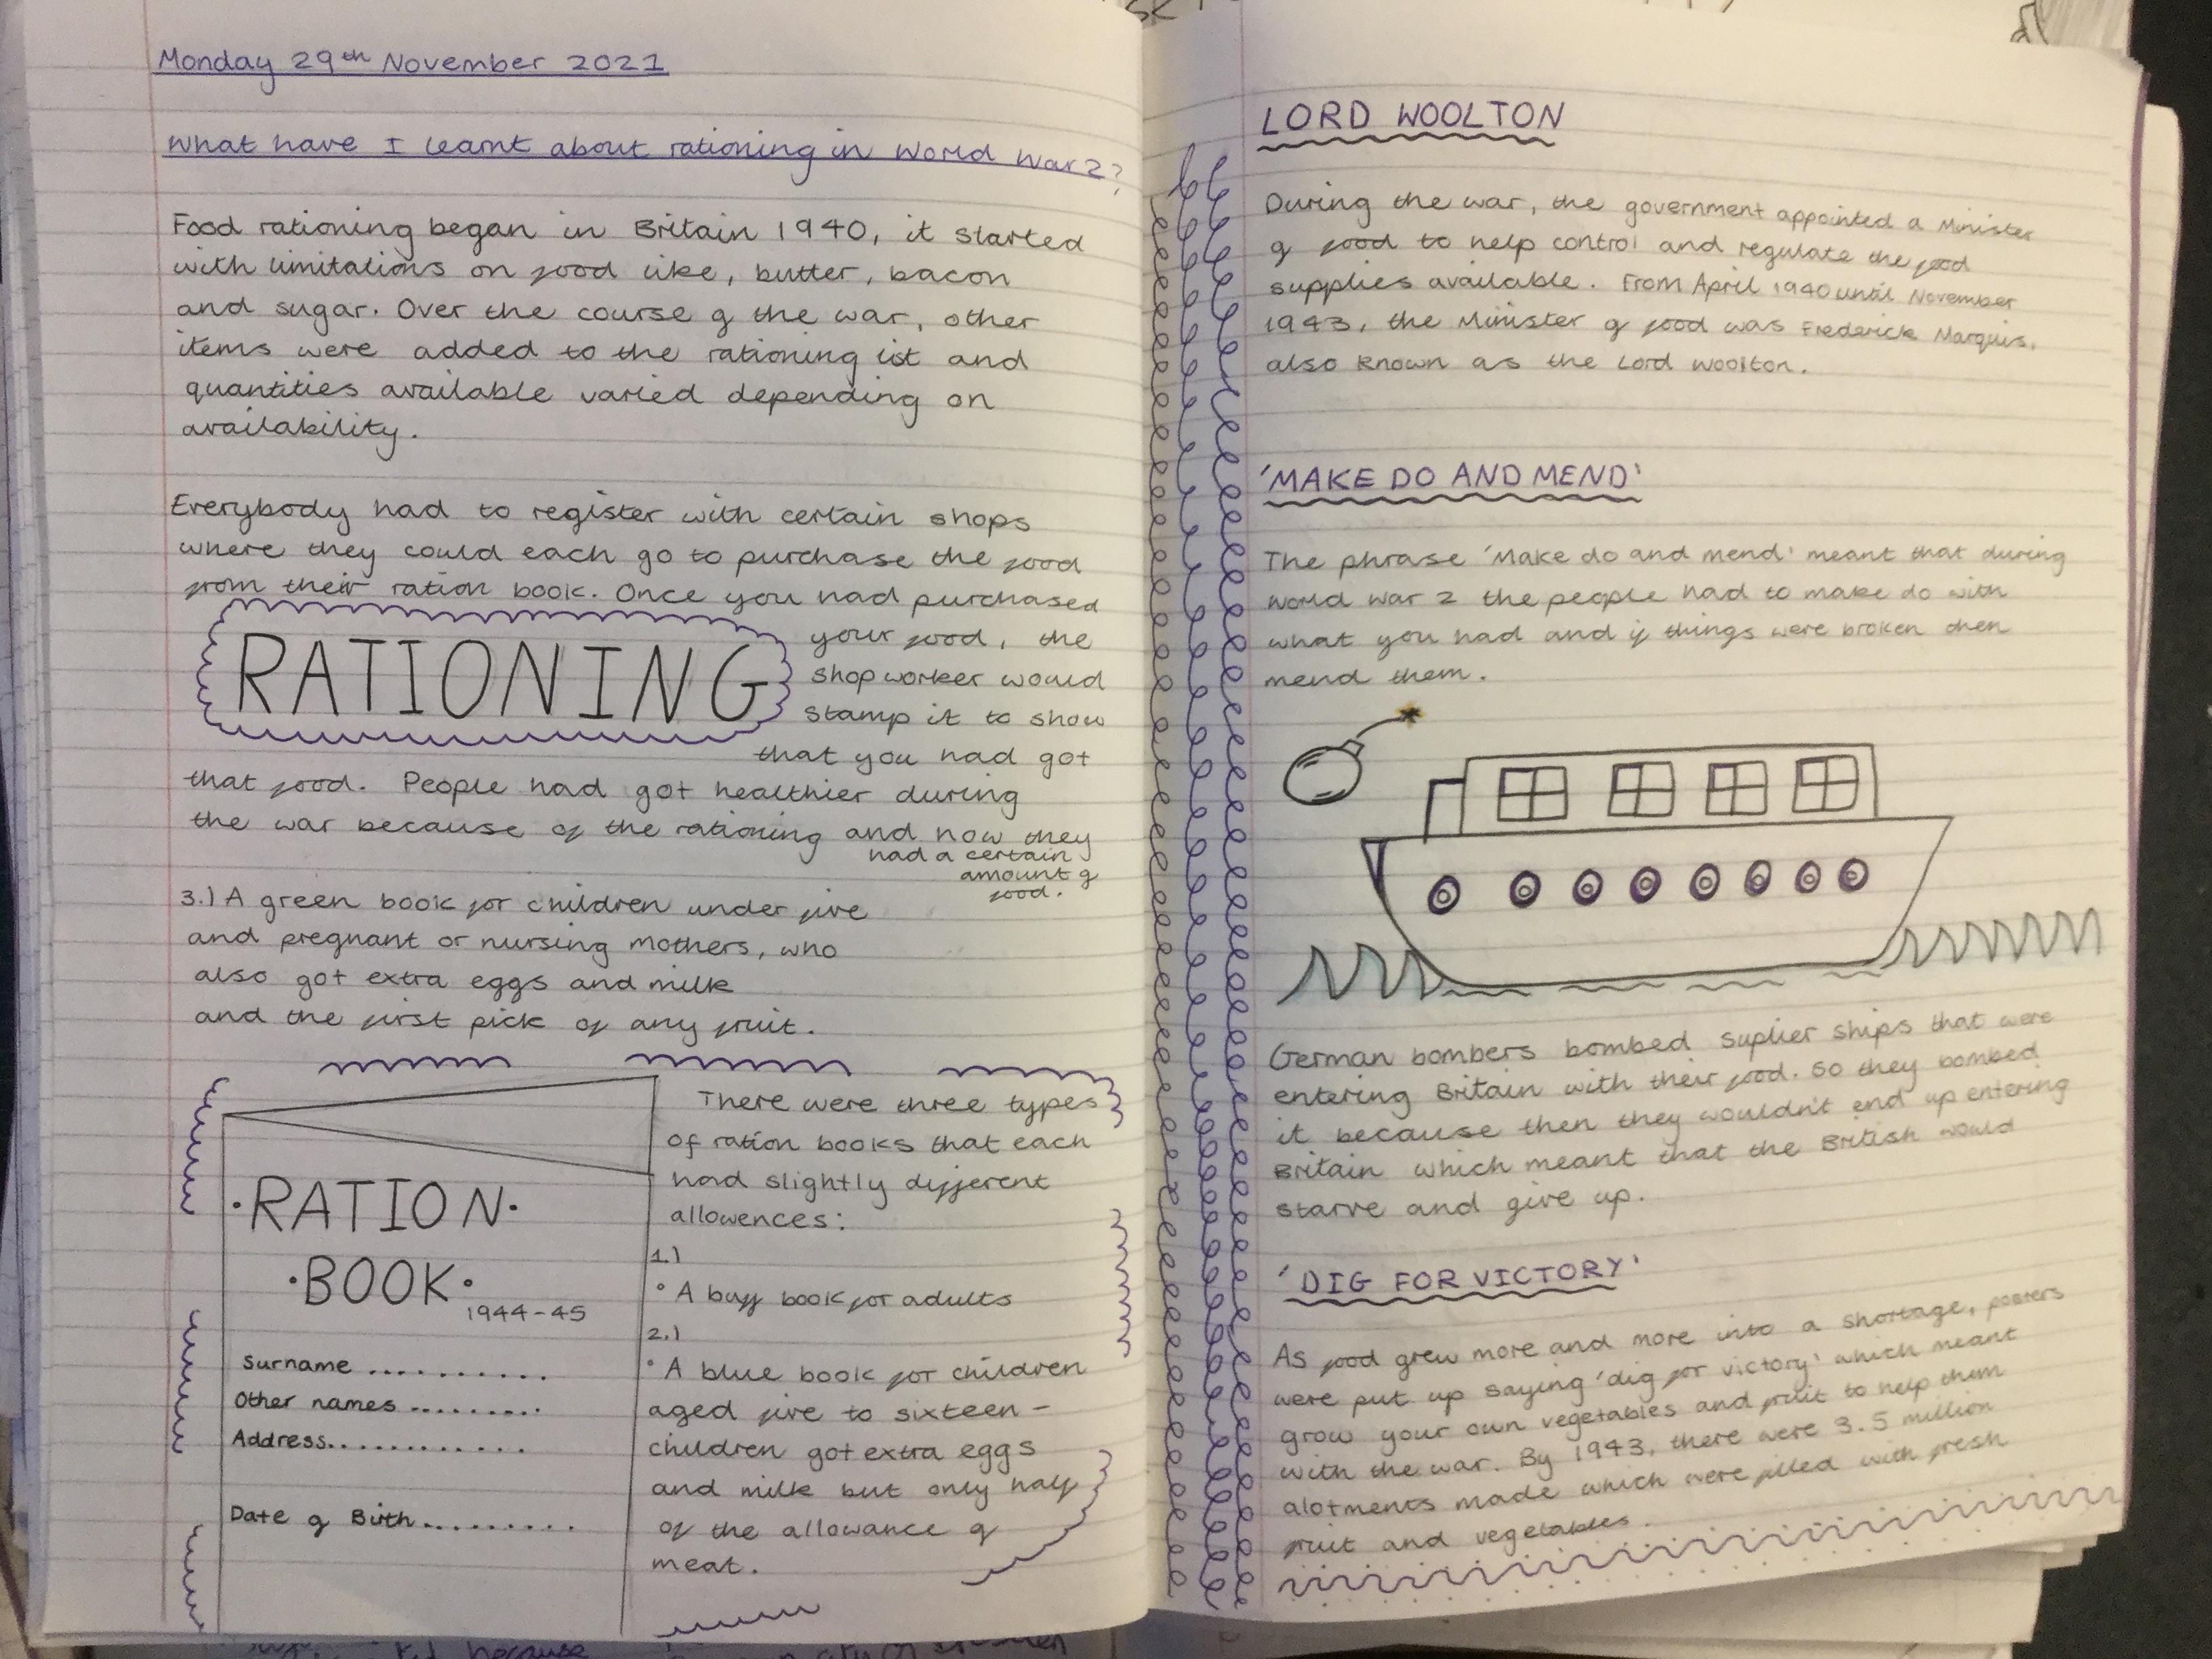 Monday 29th November 2021
What have I learnt about rationing in World War 2?
Food rationing began in Britain 1940, it started
with limitations on food like, butter, bacon
and sugar. Over the course of the war, other
items were added to the rationing list and
quantities available varied depending on
availability.
Everybody had to register with certain shops
where they could each go to purchase the food
from their ration book. Once you had purchased
RATIONING
your food, the
shop worker would
stamp it to show
that you had got
that food. People had got healthier during
the war because of the rationing and now they
had a certain
amount of
food.
3.) A green book for children under five
and pregnant or nursing mothers, who
also got extra eggs and milk
and the first pick of any fruit.
·RATION·
·BOOK·
1944-45
Surname ..........
Other names .........
Address............
Date of Birth.........
There were three types
of ration books that each
had slightly different
allowences:
1.)
° A buff book for adults
2.)
° A blue book for children
aged five to sixteen -
children got extra eggs
and milk but only half
of the allowance of
meat.
LORD WOOLTON
During the war, the government appointed a Minister
of food to help control and regulate the food
supplies available. From April 1940 until November
1943, the Minister of food was Frederick Marquis,
also known as the Lord Woolton.
'MAKE DO AND MEND'
The phrase 'Make do and mend' meant that during
World War 2 the people had to make do with
what you had and if things were broken then
mend them.
German bombers bombed suplier ships that were
entering Britain with their food. So they bombed
it because then they wouldn't end up entering
Britain which meant that the British would
starve and give up.
'DIG FOR VICTORY'
As food grew more and more into a shortage, posters
were put up saying 'dig for victory' which meant
grow your own vegetables and fruit to help them
with the war. By 1943, there were 3.5 million
alotments made which were filled with fresh
fruit and vegetables.
because